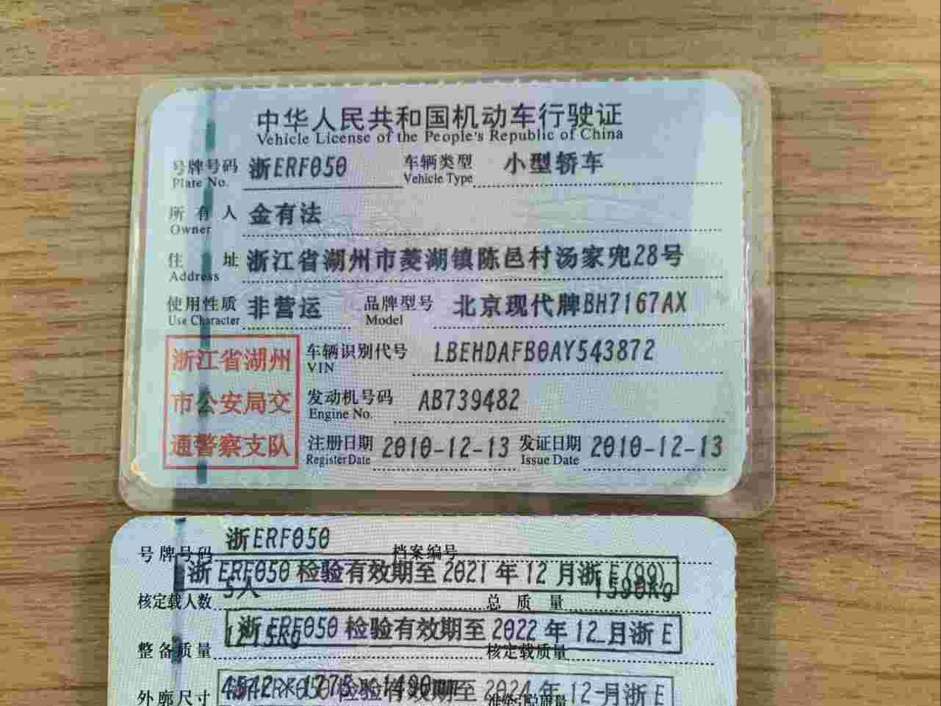 中华人民共和国机动车行驶证
Vehicle License of the People's Republic of China
号牌号码 浙ERF050 车辆类型 小型轿车
Plate No. Vehicle Type
所有人 金有法
Owner
住址 浙江省湖州市菱湖镇陈邑村汤家兜28号
Address
使用性质 非营运 品牌型号 北京现代牌BH7167AX
Use Character Model
浙江省湖州 车辆识别代号 LBEHDAFB0AY543872
VIN
市公安局交 发动机号码 AB739482
Engine No.
通警察支队 注册日期 2010-12-13 发证日期 2010-12-13
Register Date Issue Date
号牌号码 浙ERF050 档案编号
浙ERF050 检验有效期至 2021年12月浙E(99)
核定载人数 5人 总质量 1590kg
浙ERF050 检验有效期至 2022年12月浙E
整备质量 1215kg 核定载质量
浙ERF050 检验有效期至 2024年12月浙E
外廓尺寸 4542×1775×1490